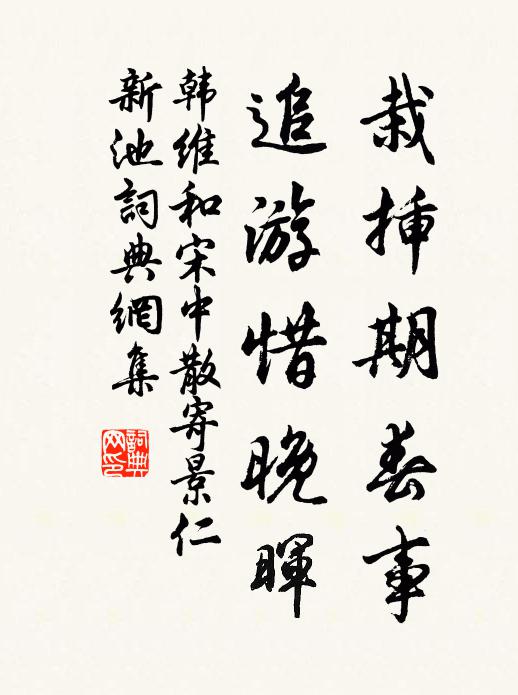 栽揷期春事
追游惜晚暉
韩維和宋中散寄景仁
新池詞典網集
詞典网印